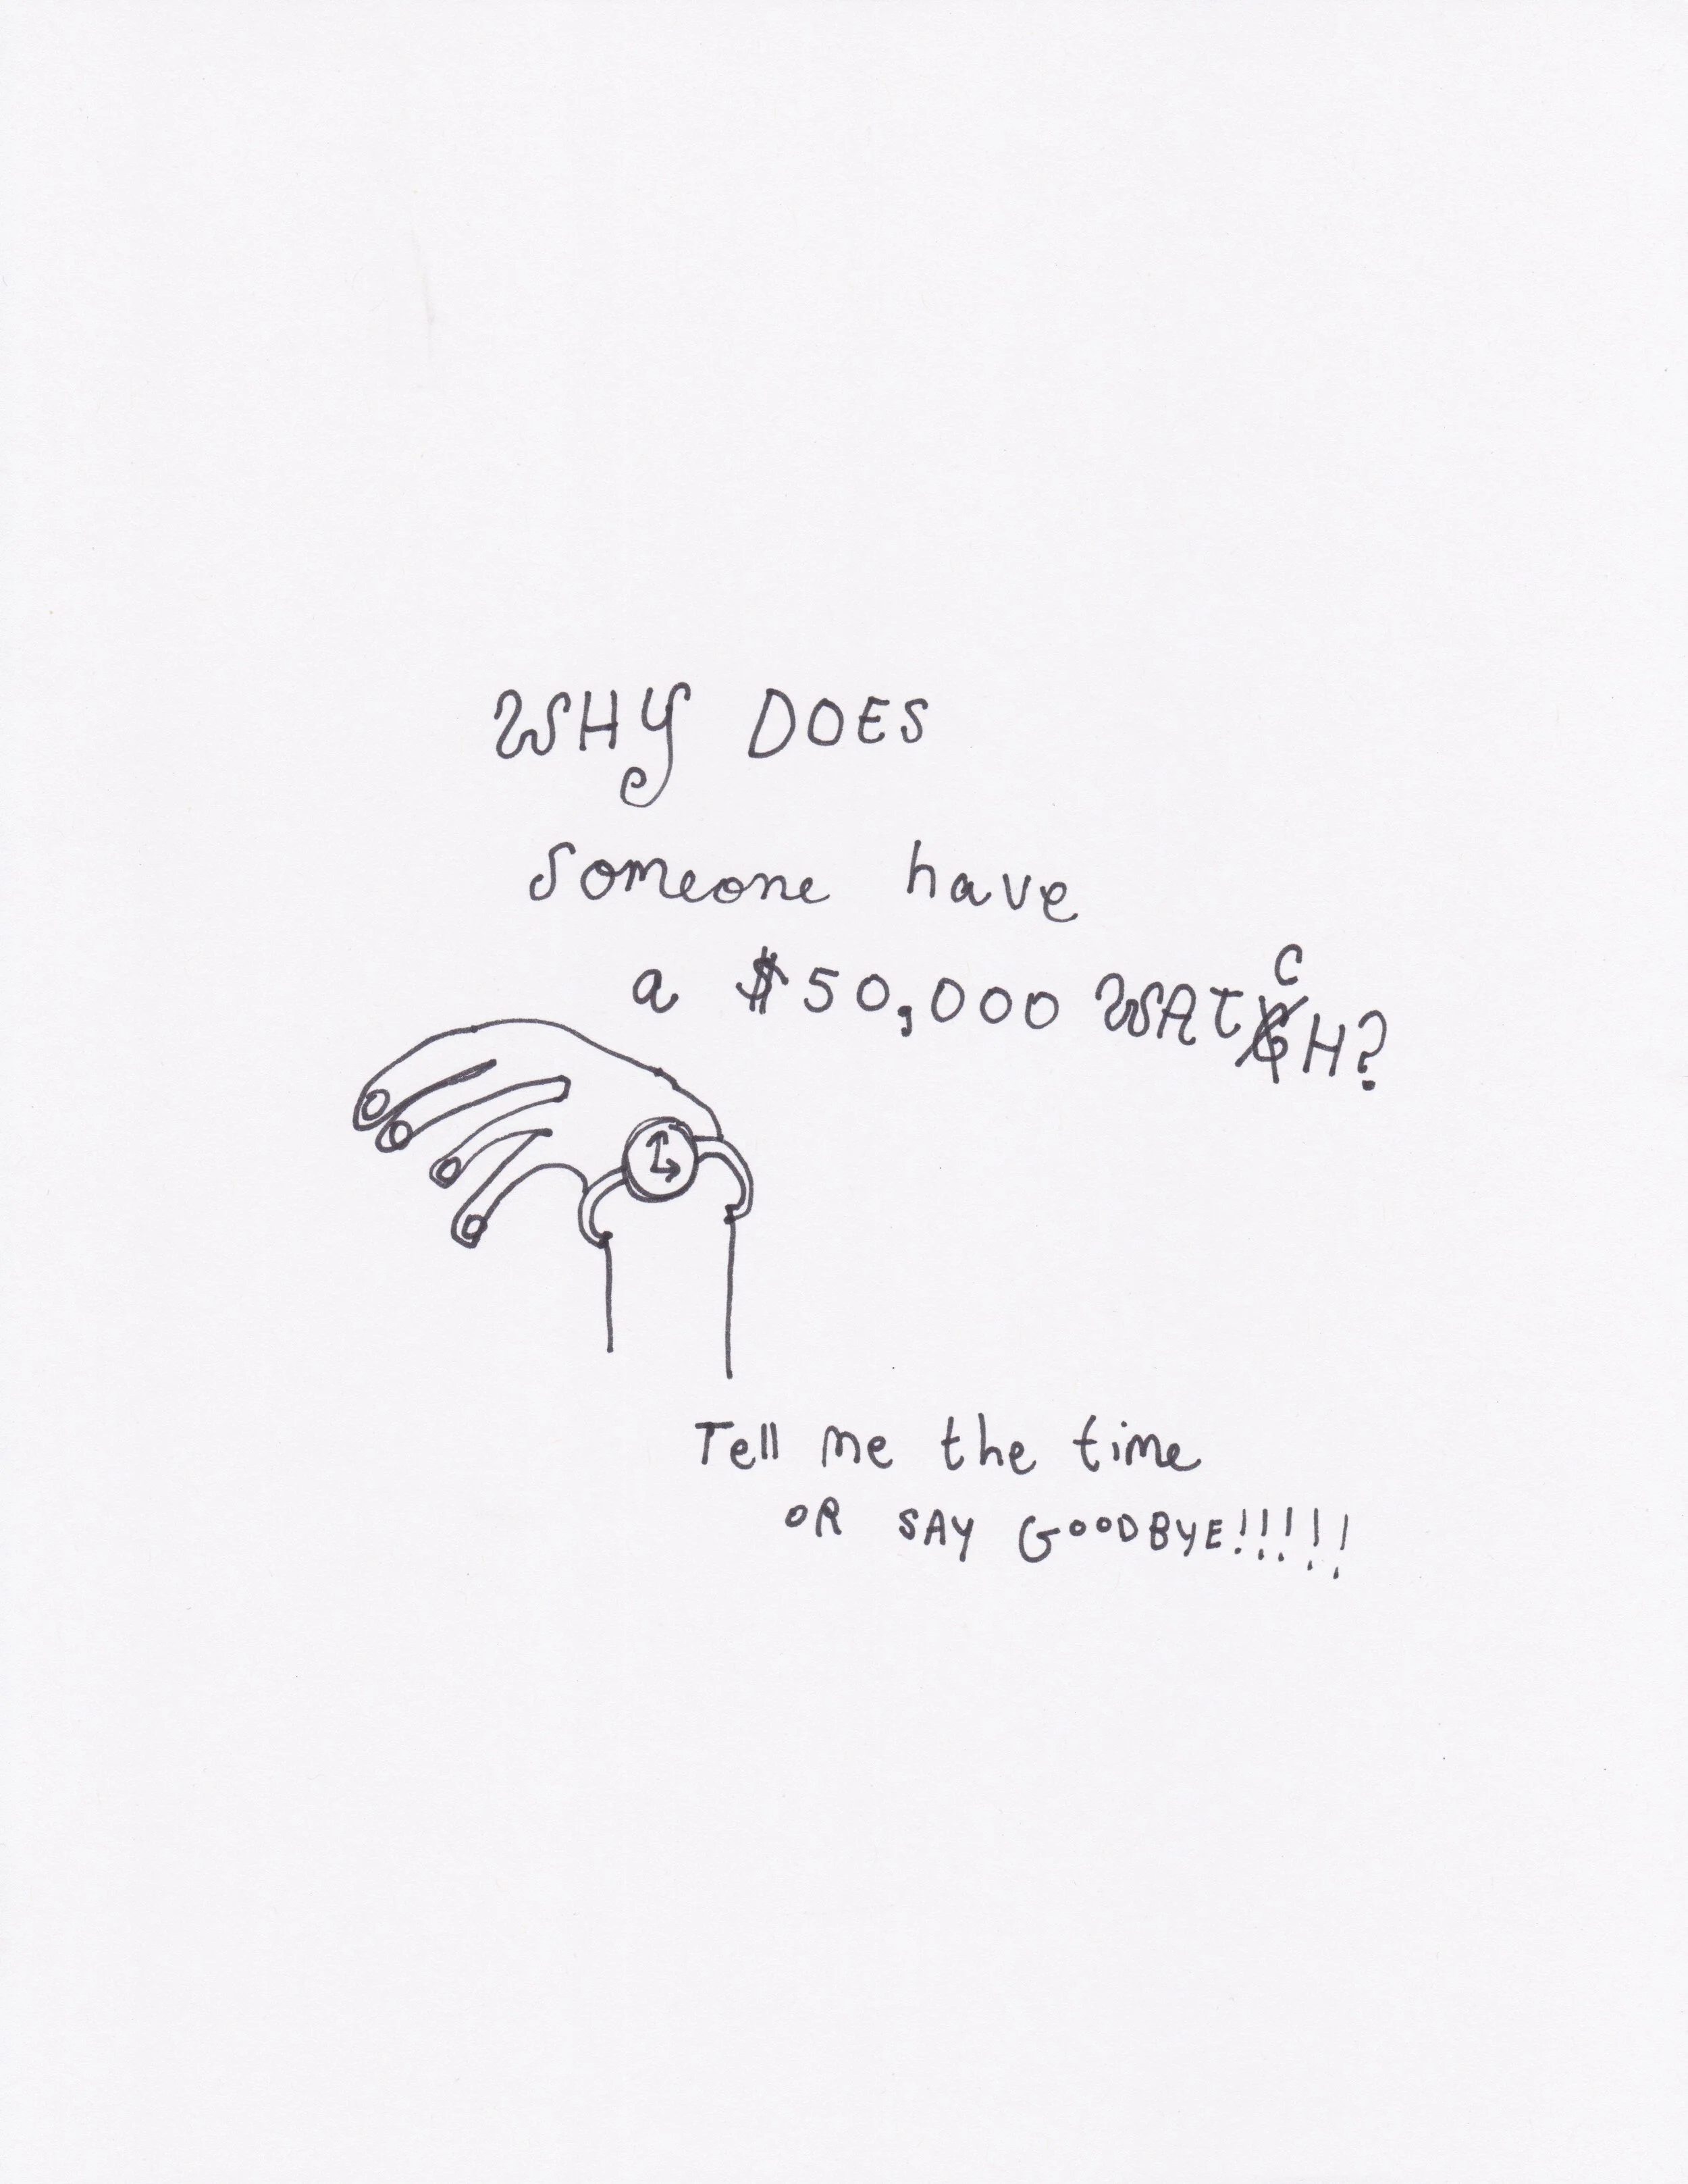 WHY DOES
someone have
a $50,000 WATCH?
Tell me the time
OR SAY GOODBYE!!!!!!